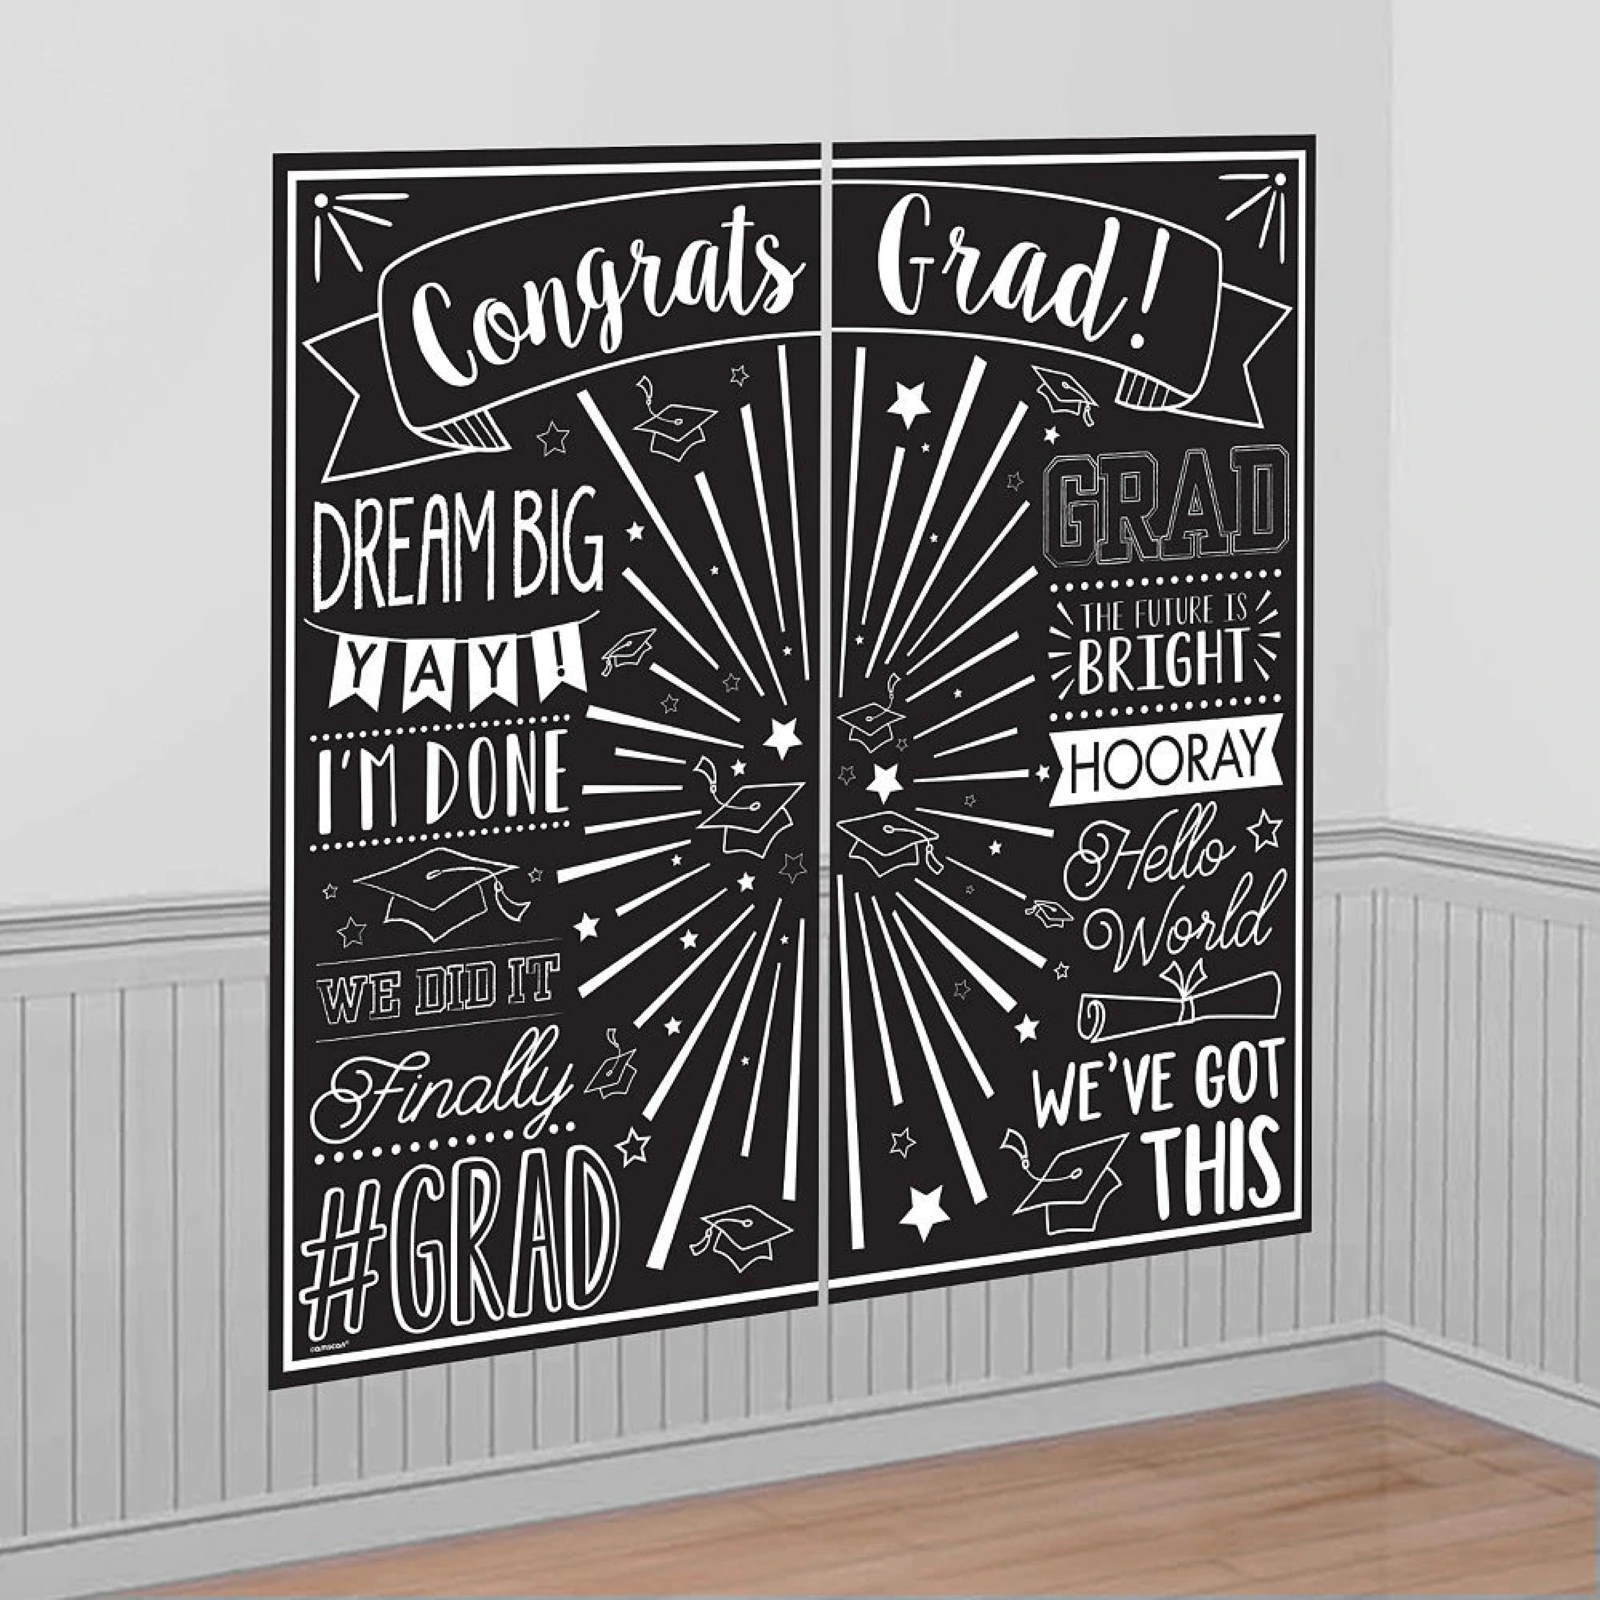 Congrats Grad!
DREAM BIG
YAY!
I'M DONE
WE DID IT
Finally
#GRAD
©amscan®
GRAD
THE FUTURE IS
BRIGHT
HOORAY
Hello
World
WE'VE GOT
THIS